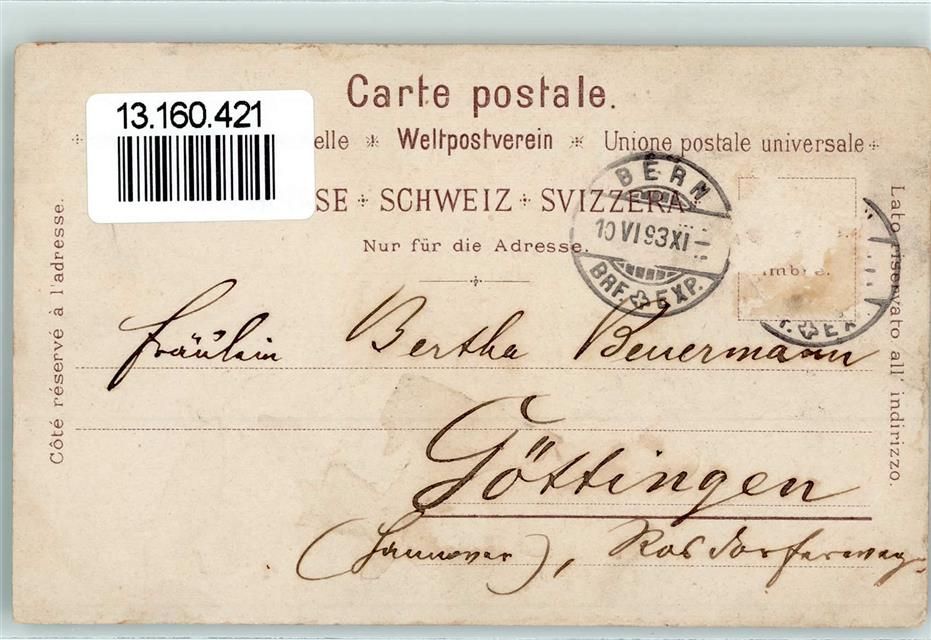 13.160.421
Carte postale.
elle * Weltpostverein * Unione postale universale
SE + SCHWEIZ + SVIZZERA.
Nur für die Adresse.
BERN
10 VI 93 XI
BRF. EXP.
imbre.
EX
Côté réservé à l'adresse.
Lato riservato all' indirizzo.
Fräulein Bertha Beuermann
Göttingen
(Hannover), Rosdorferweg